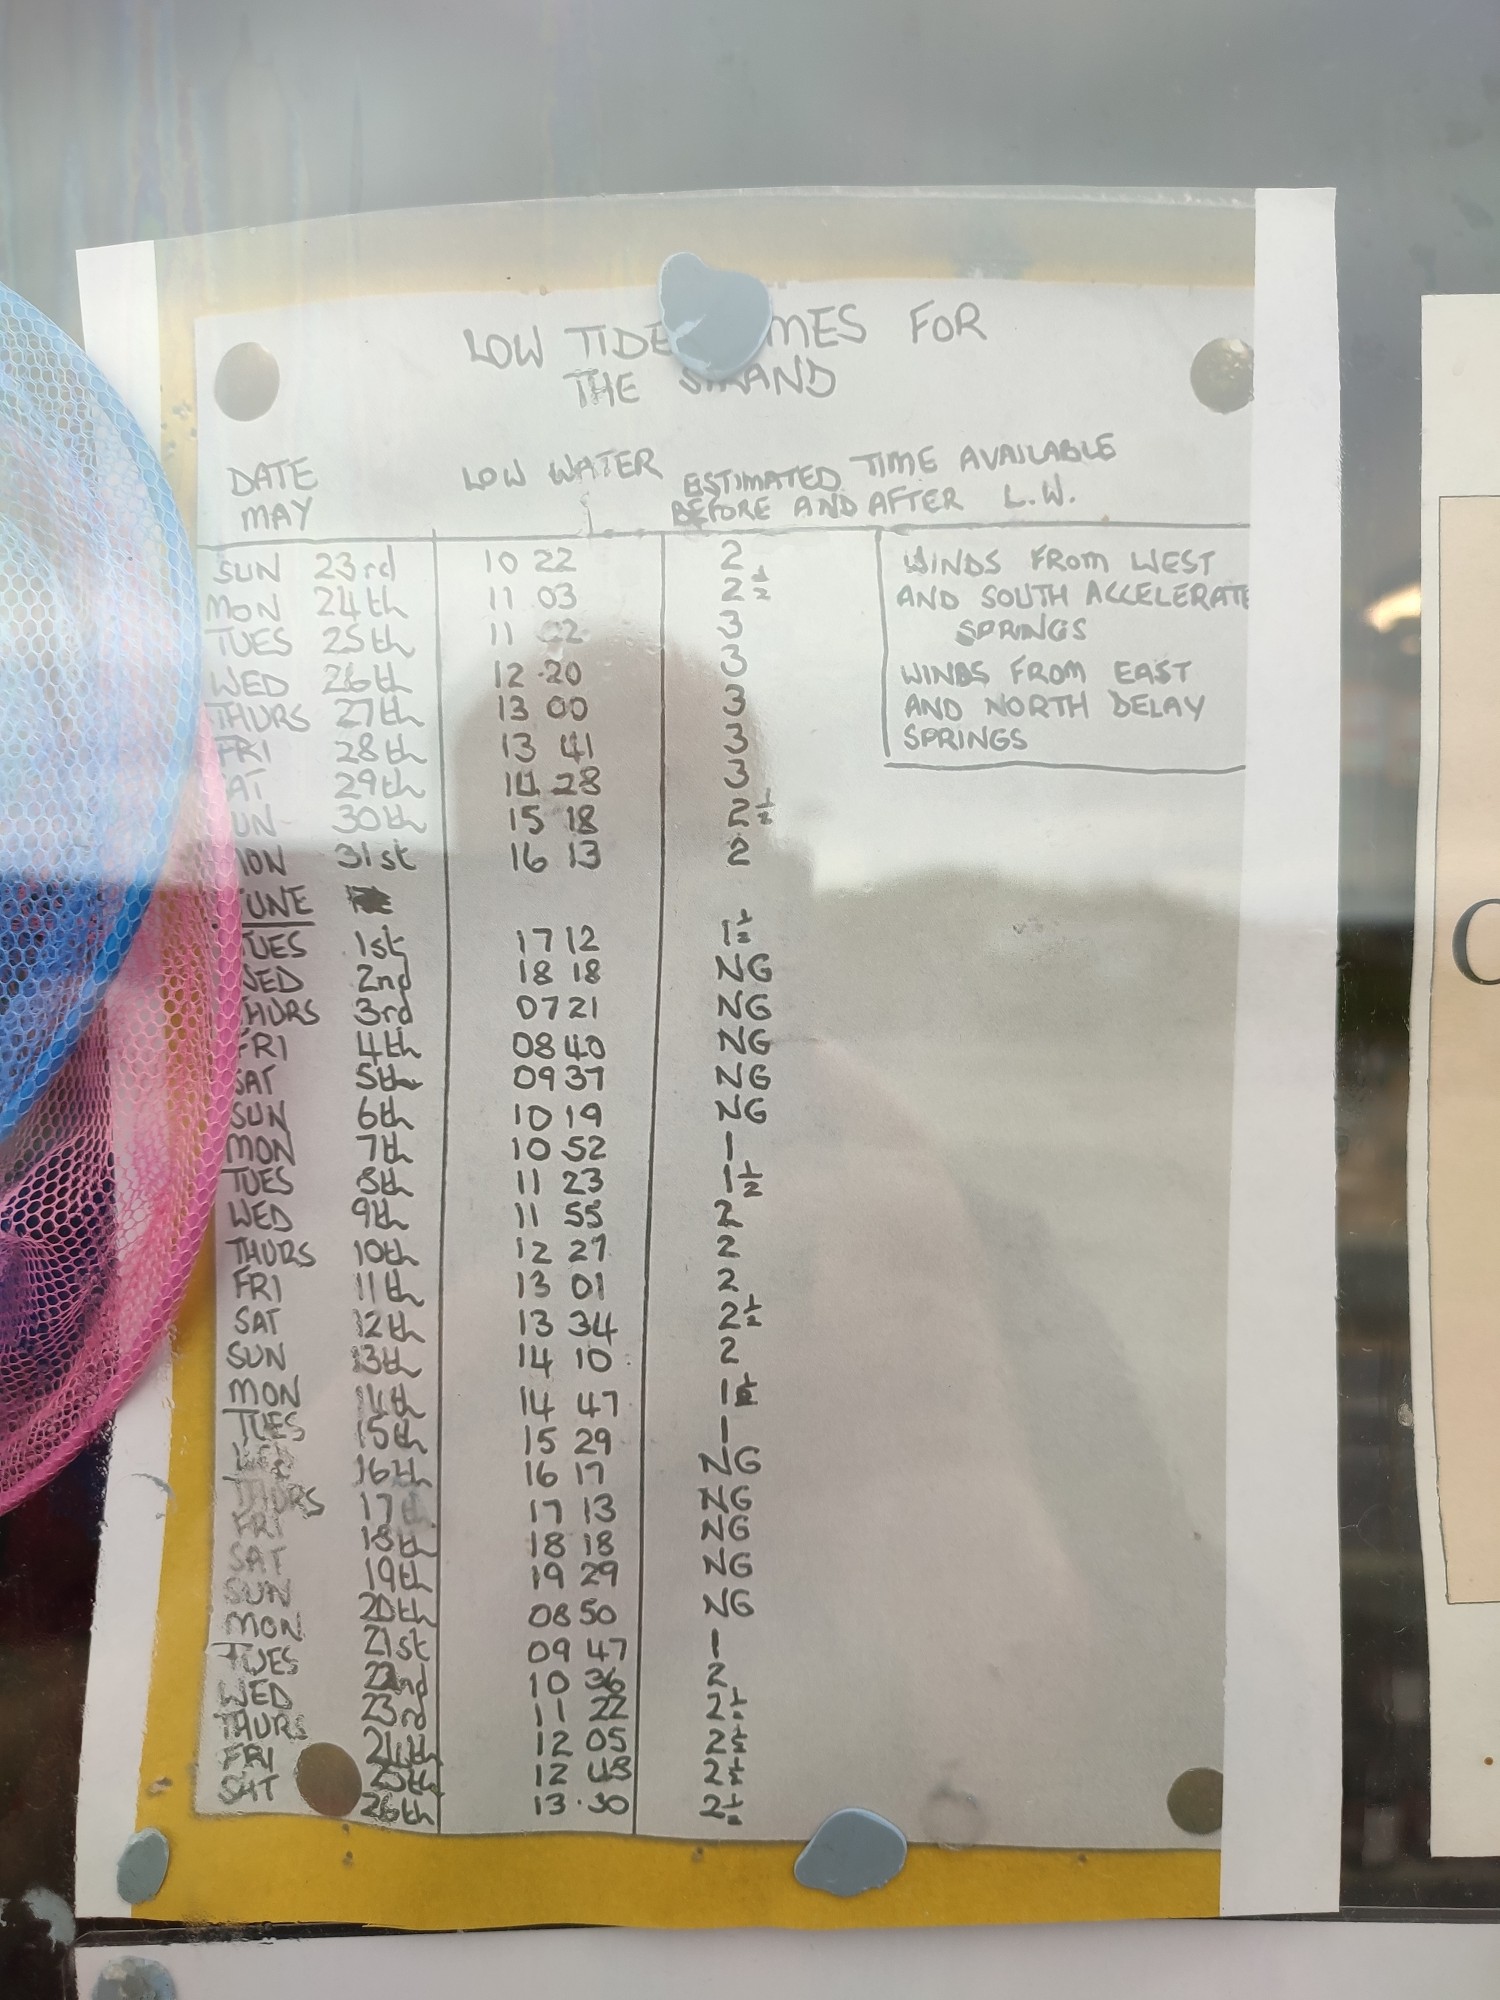 LOW TIDE MES FOR
THE STRAND
DATE LOW WATER ESTIMATED TIME AVAILABLE
MAY BEFORE AND AFTER L.W.
SUN 23rd 10 22 2
MON 24th 11 03 2½
TUES 25th 11 3
WED 26th 12.20 3
THURS 27th 13 00 3
FRI 28th 13 41 3
AT 29th 14 28 3
UN 30th 15 18 2½
ON 31st 16 13 2
WINDS FROM WEST
AND SOUTH ACCELERATE
SPRINGS
WINDS FROM EAST
AND NORTH DELAY
SPRINGS
UNE
TUES 1st 17 12 1½
WED 2nd 18 18 NG
THURS 3rd 07 21 NG
FRI 4th 08 40 NG
SAT 5th 09 37 NG
SUN 6th 10 19 NG
MON 7th 10 52 1
TUES 8th 11 23 1½
WED 9th 11 55 2
THURS 10th 12 27 2
FRI 11th 13 01 2
SAT 12th 13 34 2½
SUN 13th 14 10 2
MON 14th 14 47 1½
TUES 15th 15 29 1
16th 16 17 NG
THURS 17th 17 13 NG
FRI 18th 18 18 NG
SAT 19th 19 29 NG
SUN 20th 08 50 NG
MON 21st 09 47 1
TUES 22nd 10 36 2
WED 23rd 11 22 2½
THURS 24th 12 05 2½
FRI 25th 12 48 2½
SAT 26th 13.30 2½